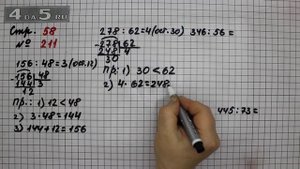 4åa5.RU
Стр. 58
№ 211
156:48=3(ост.12)
-156|48
144|3
12
Пр.: 1) 12<48
2) 3·48=144
3) 144+12=156
278:62=4(ост.30)
-278|62
248|4
30
Пр: 1) 30<62
2) 4·62=248
346:56=
445:73=